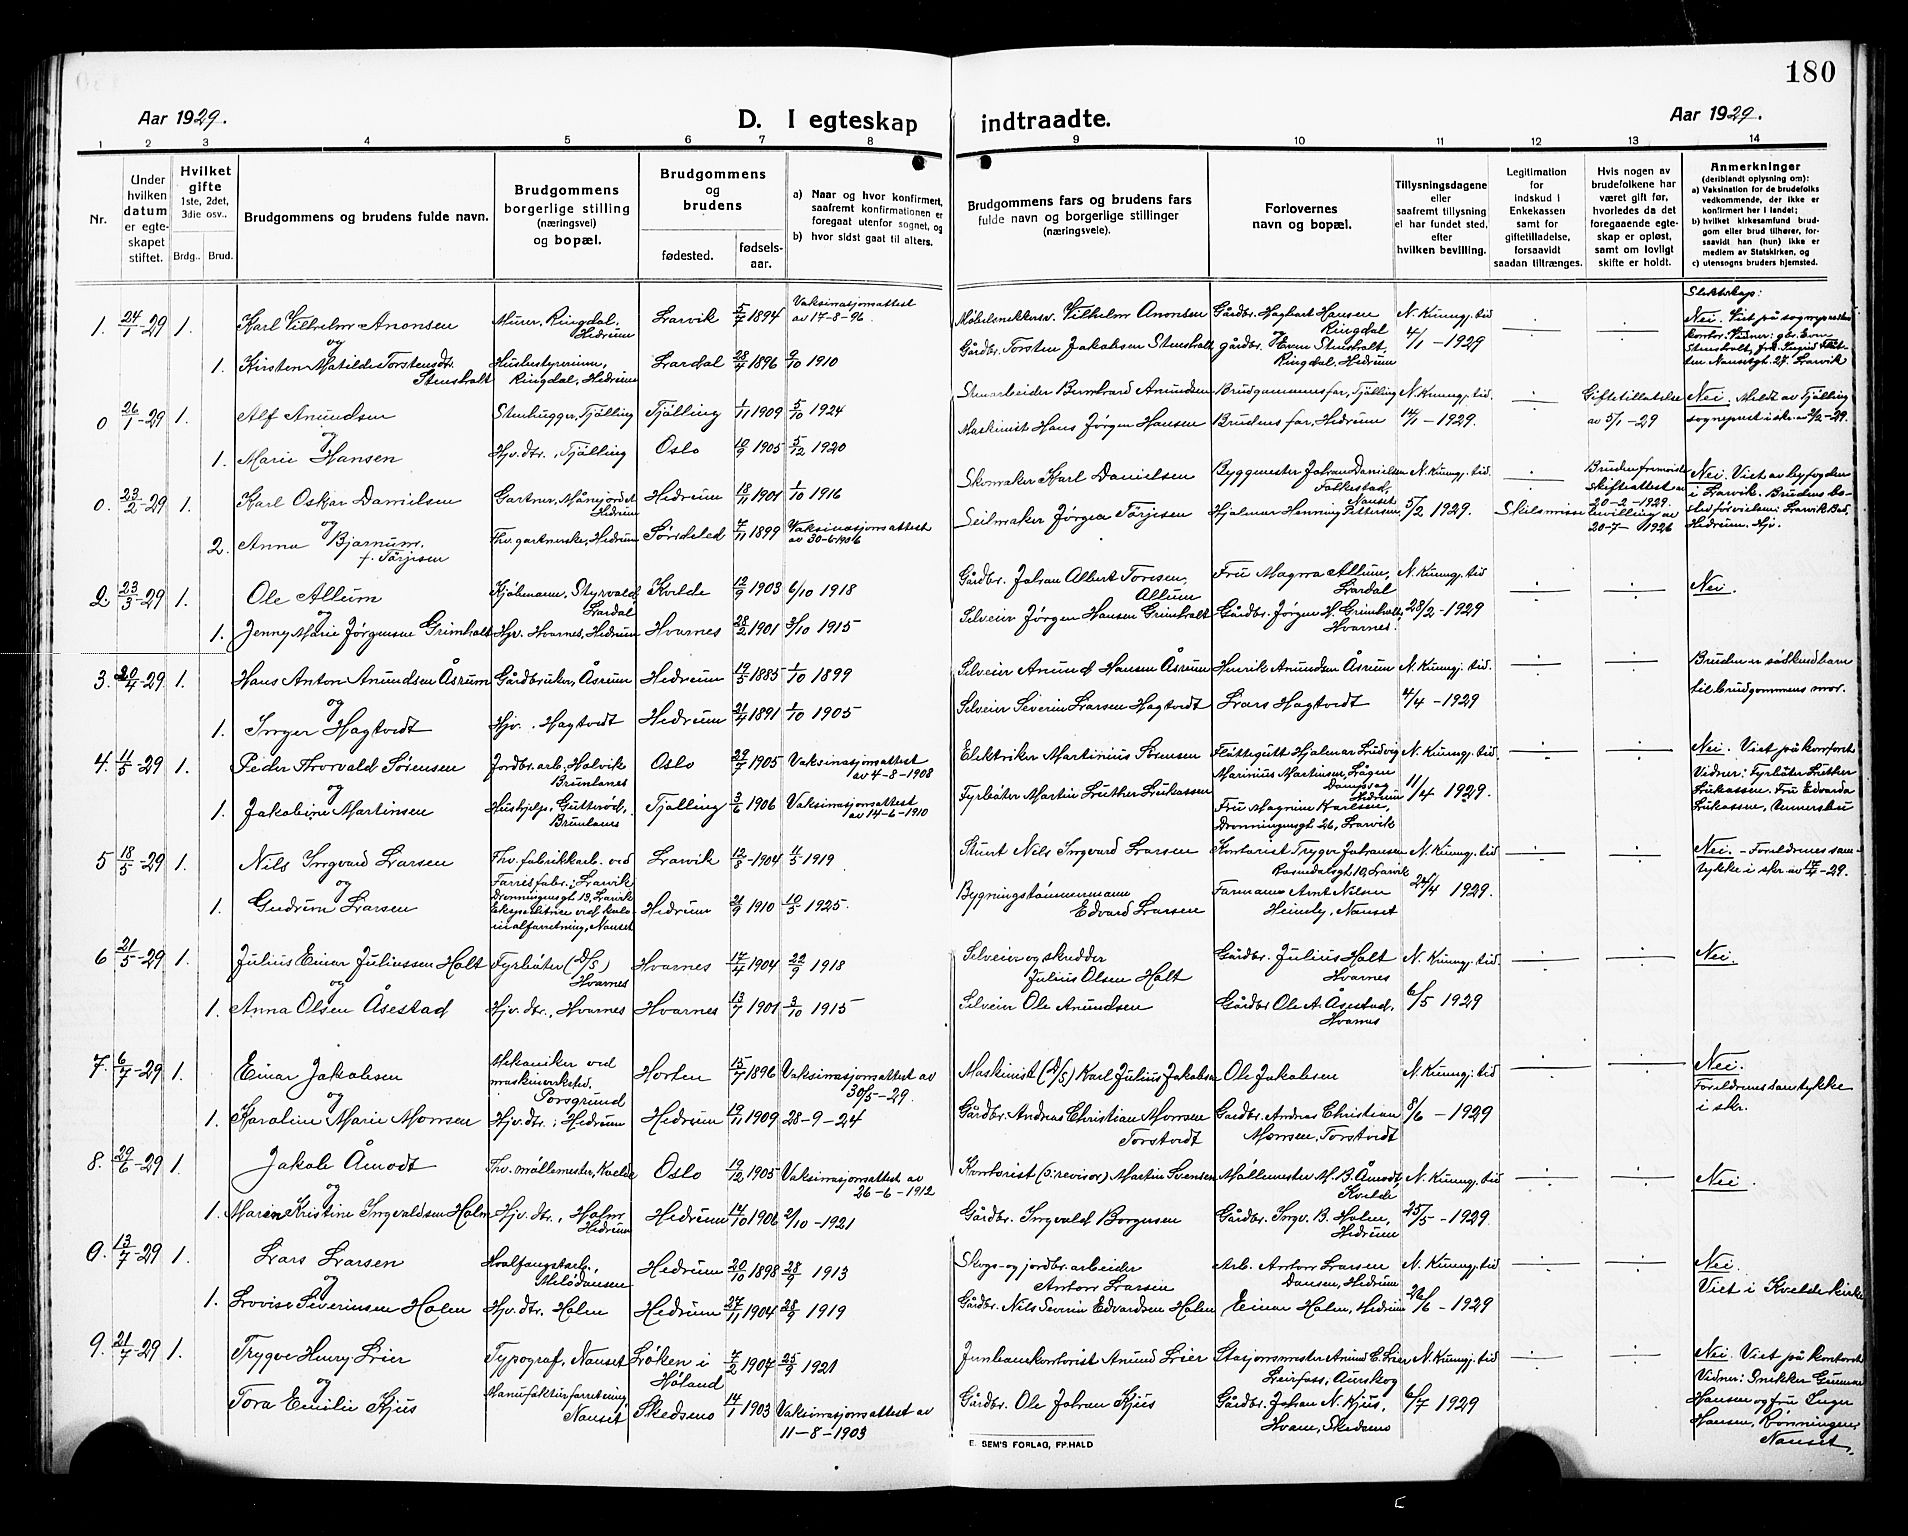 180
Aar 1929.
D. I egteskap indtraadte.
Aar 1929.
1 2 3 4 5 6 7 8 9 10 11 12 13 14
Nr.
Under hvilken datum er egteskapet stiftet.
Hvilket gifte 1ste, 2det, 3die osv..
Brdg.. Brud.
Brudgommens og brudens fulde navn.
Brudgommens borgerlige stilling (næringsvei) og bopæl.
Brudgommens og brudens
fødested.
fødselsaar.
a) Naar og hvor konfirmert, saafremt konfirmationen er foregaat utenfor sognet, og
b) hvor sidst gaat til alters.
Brudgommens fars og brudens fars fulde navn og borgerlige stillinger (næringsveie).
Forlovernes navn og bopæl.
Tillysningsdagene eller saafremt tillysning ei har fundet sted, efter hvilken bevilling.
Legitimation for indskud i Enkekassen samt for giftetilladelse, forsaavidt saadan tiltrænges.
Hvis nogen av brudefolkene har været gift før, hvorledes da det foregaaende egteskap er opløst, samt om lovligt skifte er holdt.
Anmerkninger (deriblandt oplysning om):
a) Vaksination for de brudefolks vedkommende, der ikke er konfirmert her i landet;
b) hvilket kirkesamfund brudgom eller brud tilhører, forsaavidt han (hun) ikke er medlem av Statskirken, og
c) utensogns bruders hjemsted.
1. 24/1-29 1. Karl Vilhelm Anonsen Murer, Ringdal, Hedrum Larvik 5/7 1894 Vaksinasjonsattest av 17-8-96. Møbelsnekkersv. Vilhelm Anonsen Gårdbr. Hagbart Hansen Ringdal N. Kunngj. tid Slektskap: Nei. Viet på sogneprestens
og
1 Kirsten Matilde Torstensdtr. Stensholt Husbestyrerinne, Ringdal, Hedrum Lardal 28/4 1896 9/10 1910 Gårdbr. Torsten Jakobsen Stensholt og gårdbr. Even Stensholt Ringdal, Hedrum 4/1 - 1929 kontor. Vidner: gbr. Even Stensholt, frk. Ingrid Nansetgt. 27. Larvik
0 26/1-29 1. Alf Anundsen Stenhugger, Tjølling Tjølling 1/11 1909 5/10 1924 Stenarbeider Bernhard Anundsen Brudgommens far, Tjølling N. Kunngj. tid. Giftetillatelse av 5/1-29 Nei. Meldt av Tjølling
og
1. Marie Hansen Hjv. dtr., Tjølling Oslo 10/9 1905 5/12 1920 Maskinist Hans Jørgen Hansen Brudens far, Hedrum 14/1 - 1929. sogneprest i skr. av 2/2-29.
0. 23/2-29 1. Karl Oskar Danielsen Gartner, Månejordet Hedrum Hedrum 18/11 1901 1/10 1916 Skomaker Karl Danielsen Byggmester Johan Danielsen Falkestad, Nanset N. Kunngj. tid. Bruden fremviste skifteattest av 20-2-1929. Nei. Viet av byfogden i Larvik.
og
2. Anna Bjarnum, f. Törjesen Fhv. gartnerske, Hedrum Søndeled 7/11 1899 Vaksinasjonsattest av 30-6-1906 Seilmaker Jørgen Törjesen Hjalmar Henning Pettersen 5/2 1929. Skilsmisse bevilling av 20-7-1926 Hedrum.
2. 23/3-29 1. Ole Allum Kjøbmann, Styrvold, Lardal Kvelde 12/9 1903 6/10 1918 Gårdbr. Johan Albert Toresen Allum Fru Magna Allum, Lardal N. Kunngj. tid Nei.
og
1. Jenny Marie Jørgensen Grimholt Hjv. Hvarnes, Hedrum Hvarnes 28/2 1901 3/10 1915 Selveier Jørgen Hansen Grimholt Gårdbr. Jørgen H. Grimholt, Hvarnes. 28/2 - 1929
3. 20/4-29 1. Hans Anton Anundsen Åsrum Gårdbruker, Åsrum Hedrum 19/5 1885 1/10 1899 Selveier Anund Hansen Åsrum Henrik Anundsen Åsrum N. Kunngj. tid. Bruden er sødkendbarn
og
1. Inger Hagtvedt Hjv., Hagtvedt Hedrum 21/4 1891 1/10 1905 Selveier Severin Larsen Hagtvedt Lars Hagtvedt 4/4 - 1929 til brudgommens mor.
4. 11/5-29 1. Peder Thorvald Sørensen Jordbr. arb. Halvik Brunlanes Oslo 29/7 1905 Vaksinasjonsattest av 4-8-1908 Elektriker Martinius Sørensen Fløttegutt Hjalmar Ludvig Marinius Martinsen, Lågen Damps og Hedrum N. Kunngj. tid. Nei. Viet på kontoret
og
1. Jakobine Martinsen Hushjelp, Gutterød, Brunlanes Tjølling 3/6 1906 Vaksinasjonsattest av 14-6-1910 Fyrbøter Martin Luther Lukassen Fru Magnine Karlsen, Dronningensgt 26, Larvik 11/4 1929. Vidner: Fyrbøter Luther Lukassen. Fru Edvarda Lukassen, Unnersbu
5 18/5-29 1. Nils Ingvard Larsen Fhv. fabrikkarb. ved Farrisfabr. i Larvik Dronningensgt 19, Larvik Larvik 12/8-1904 11/5 1919 Stuert Nils Ingvard Larsen Kontorist Trygve Johansen Rosendalsgt 10, Larvik N. Kunngj. tid. Nei. - Foreldrenes samtykke i skr. av 17/4-29.
og
1. Gudrun Larsen Ekspeditrise ved kolonialforretning, Nanset Hedrum 21/9 1910 10/5 1925. Bygningstømmermann Edvard Larsen Formann Arnt Nilsen Heimly, Nanset 24/4 1929.
6 21/5-29 1. Julius Einar Juliussen Holt Fyrbøter (D/S) Hvarnes Hvarnes 17/4 1904 22/9 1918 Selveier og skredder Julius Olsen Holt Gårdbr. Julius Holt Hvarnes N. Kunngj. tid. Nei.
og
1. Anna Olsen Åsestad Hjv. dtr., Hvarnes Hvarnes 13/7 1901 3/10 1915 Selveier Ole Anundsen Gårdbr. Ole A. Åsestad, Hvarnes 6/5 1929
7. 6/7-29 1. Einar Jakobsen Mekaniker ved maskinverksted, Porsgrund Horten 15/7 1896 Vaksinasjonsattest av 30/5-29. Maskinist (D/S) Karl Julius Jakobsen Ole Jakobsen N. Kunngj. tid Nei. Foreldrenes samtykke i skr.
og
1. Karoline Marie Momsen Hjv. dtr., Hedrum Hedrum 19/11 1909 28-9-24 Gårdbr. Andreas Christian Momsen Torstvedt Gardbr. Andreas Christian Momsen, Torstvedt 8/6 - 1929
8. 29/6-29 1. Jakob Åmodt Fhv. møllemester, Kvelde Oslo 19/12 1905 Vaksinasjonsattest av 26-6-1912 Kontorist (o: revisor) Martin Svensen Møllemester M. B. Åmodt, Kvelde N. Kunngj. tid Nei.
og
1. Maren Kristine Ingvaldsen Holm Hjv. dtr., Holm, Hedrum Hedrum 14/10 1906 2/10-1921 Gårdbr. Ingvald Borgersen Gårdbr. Ingv. B. Holm, Hedrum 25/5 - 1929.
9. 13/7-29 1. Lars Larsen Hvalfangstarb., Dansen Hedrum 20/10 1898 28/9 1913 Skogs- og jordbr. arbeider Anton Larsen Arb. Anton Larsen Dansen, Hedrum N. Kunngj. tid Nei. Viet i Kvelde kirke
og
1. Lovise Severinsen Holm Hjv. dtr. Holm Hedrum 27/1 1904 28/9 1919 Gårdbr. Nils Severin Edvardsen Holm Einar Holm, Hedrum 26/6 - 1929
9. 21/7-29 1. Trygve Henry Lier Typograf, Nanset Løken i Høland 7/2 1904 25/9 1921 Jernbanekontorist Anund Lier Stasjonsmester Anund E. Lier Lierfoss, Aurskog N. Kunngj. tid Nei. Viet på kontoret
og
Tora Emilie Kjus Manufakturforretning, Nanset Skedsmo 14/1 1903 Vaksinasjonsattest av 11-8-1903 Gårdbr. Ole Johan Kjus Gårdbr. Johan N. Kjus, Hvam, Skedsmo 6/7 1929 Vidner: Snikker Gunnar Hansen og fru Inga Hansen, Rønningen, Nanset.
E. SEM'S FORLAG, FR.HALD